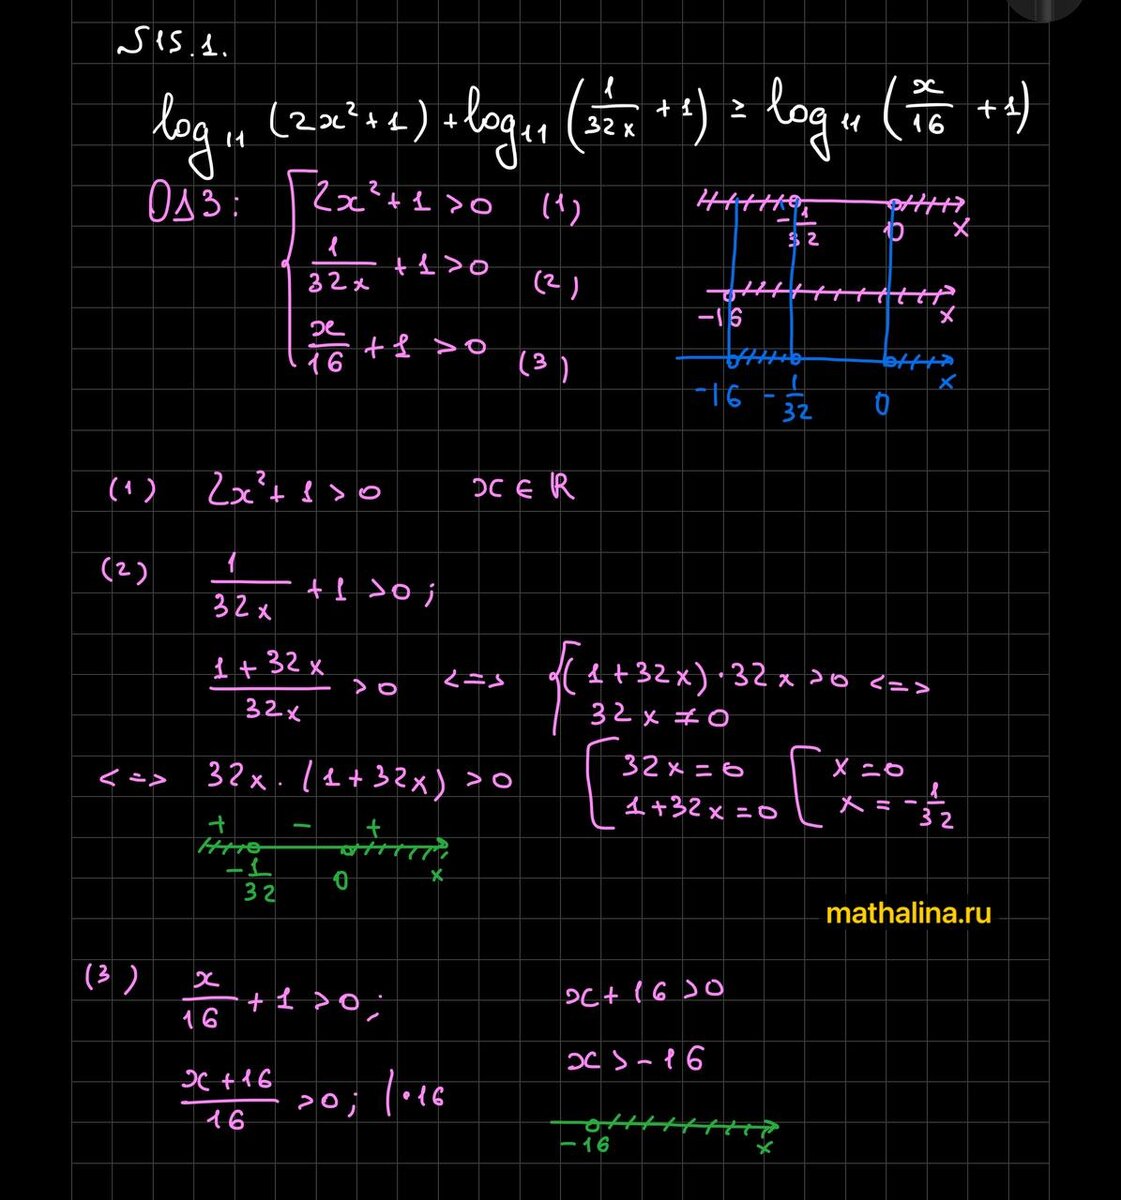 S15.1.
log₁₁ (2x²+1) + log₁₁ (1/(32x) + 1) ≥ log₁₁ (x/16 + 1)
ОДЗ: { 2x²+1 >0 (1)
1/(32x) + 1 >0 (2)
x/16 + 1 >0 (3)
-1/32 0 x
-16 x
-16 -1/32 0 x
(1) 2x²+1 >0 x ∈ ℝ
(2) 1/(32x) + 1 >0 ;
(1+32x)/(32x) >0 <=> { (1+32x)·32x >0 <=>
32x ≠ 0
<=> 32x·(1+32x) >0 [ 32x=0 [ x=0
1+32x=0 x = -1/32
+ - +
-1/32 0 x
mathalina.ru
(3) x/16 + 1 >0 ; x+16 >0
x > -16
(x+16)/16 >0 ; |·16
-16 x